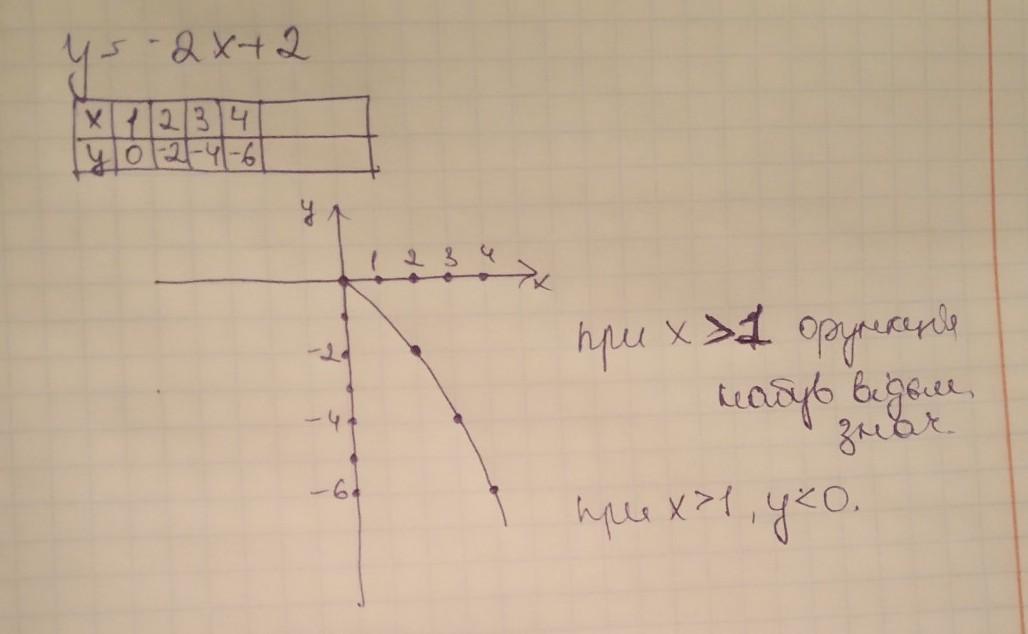 y = -2x+2
x 1 2 3 4
y 0 -2 -4 -6
y
1 2 3 4
x
-2
-4
-6
при x > 1 функція
набув відєм,
знач.
при x > 1, y < 0.